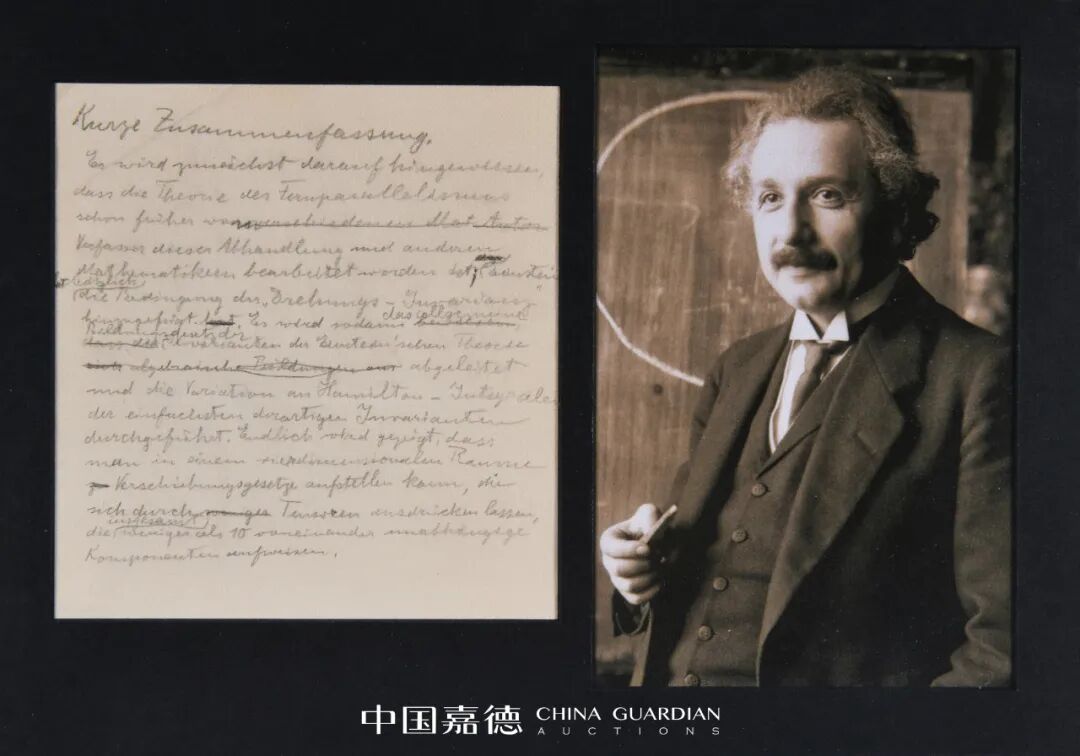 Kurze Zusammenfassung.
Es wird zunächst darauf hingewiesen,
dass die Theorie des Fernparallelismus
schon früher von
Verfasser dieser Abhandlung und anderen
Mathematikern bearbeitet worden ist,
die Bedingung der „Drehungs-Invarianz"
hinzugefügt hat. Es wird sodann das allgemeine
Bildungsgesetz der
Invarianten der Einstein'schen Theorie
sich algebraische Bildungen aus abgeleitet
und die Variation am Hamilton-Integrale
der einfachsten derartigen Invarianten
durchgeführt. Endlich wird gezeigt, dass
man in einem vierdimensionalen Raume
Verschiebungsgesetze aufstellen kann, die
sich durch weniger Tensoren ausdrücken lassen,
insgesamt
die weniger als 10 voneinander unabhängige
Komponenten aufweisen.
中国嘉德 CHINA GUARDIAN
AUCTIONS